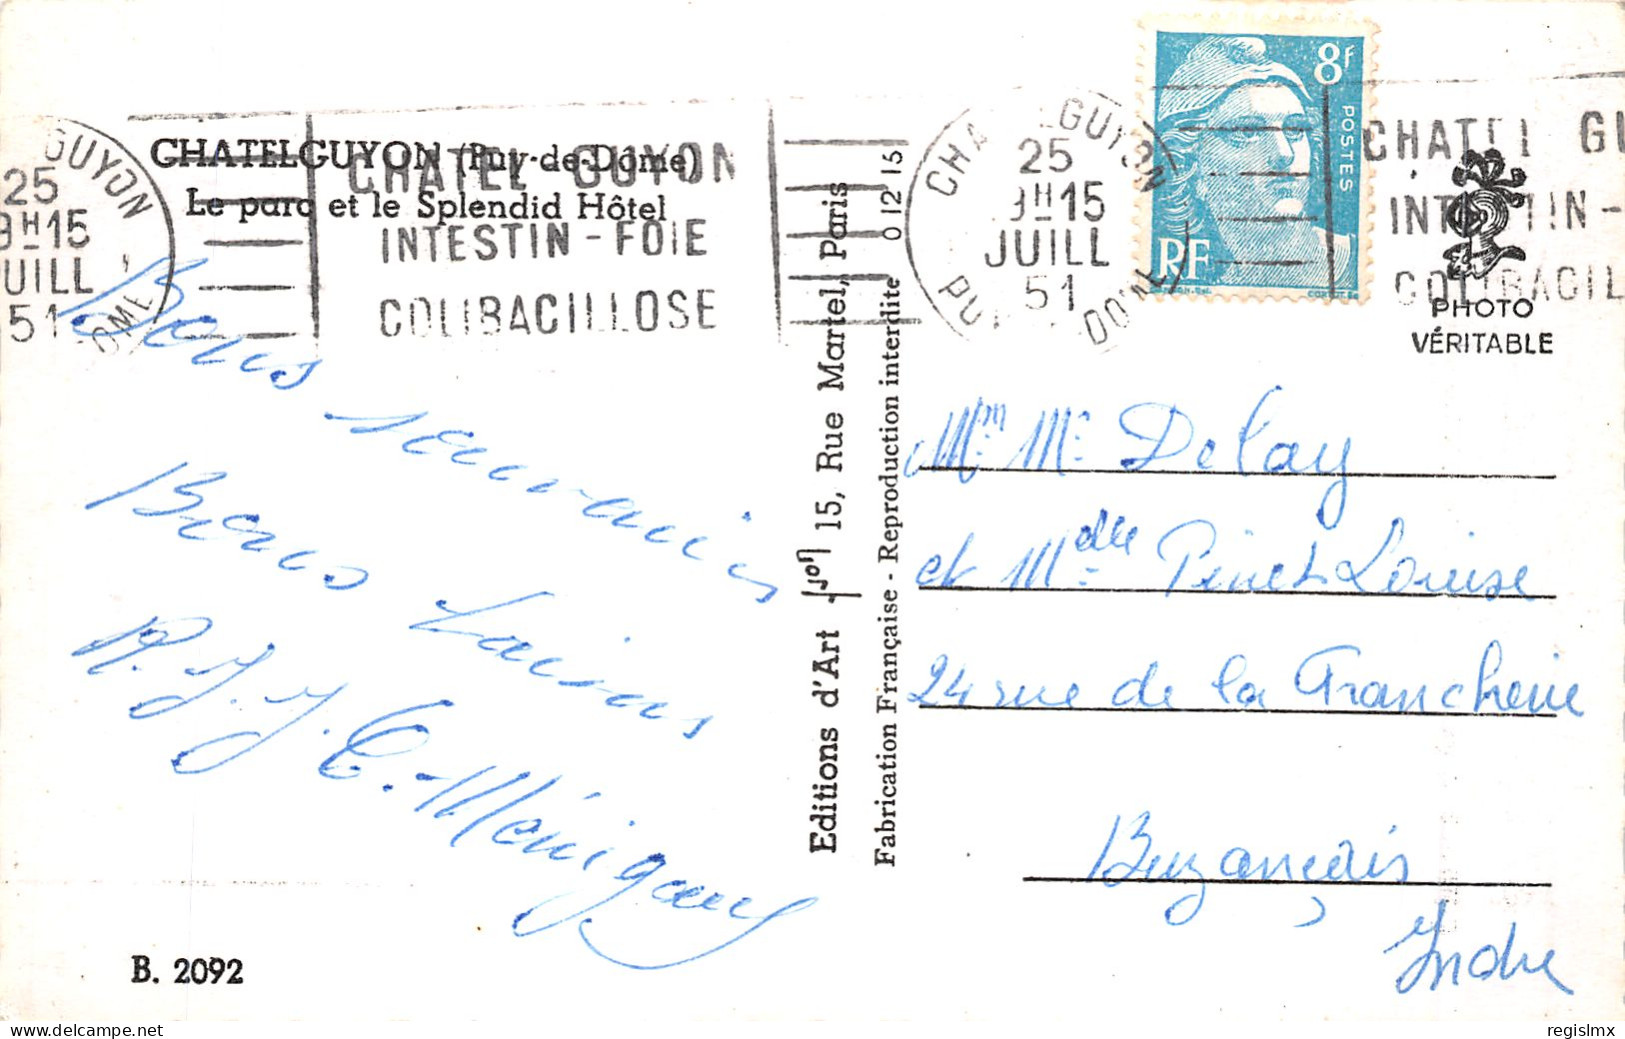 CHATELGUYON (Puy-de-Dome)
Le parc et le Splendid Hôtel
GUYON
25
9H15
JUILL
51
DOME
CHATEL GUYON
INTESTIN - FOIE
COLIBACILLOSE
CHATEL GUYON
25
9H15
JUILL
51
PUY DE DOME
8F
POSTES
RF
CHATEL GU
INTESTIN -
COLIBACIL
PHOTO
VÉRITABLE
Bons souvenirs
Bons
B. 2092
Editions d'Art 15, Rue Martel, Paris
Fabrication Française - Reproduction interdite 0 12 15
Mr Me Delay
et Mdlle Pinet Louise
24 rue de la
Buzançais
Indre
regislmx
www.delcampe.net